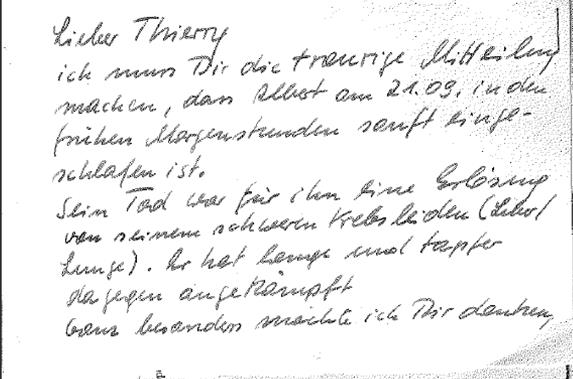 Lieber Thierry
ich muss Dir die traurige Mitteilung
machen, dass Albert am 21.09. in den
frühen Morgenstunden sanft einge-
schlafen ist.
Sein Tod war für ihn eine Erlösung
von seinem schweren Krebsleiden (Leber/
Lunge). Er hat lange und tapfer
dagegen angekämpft
Ganz besonders möchte ich Dir danken,